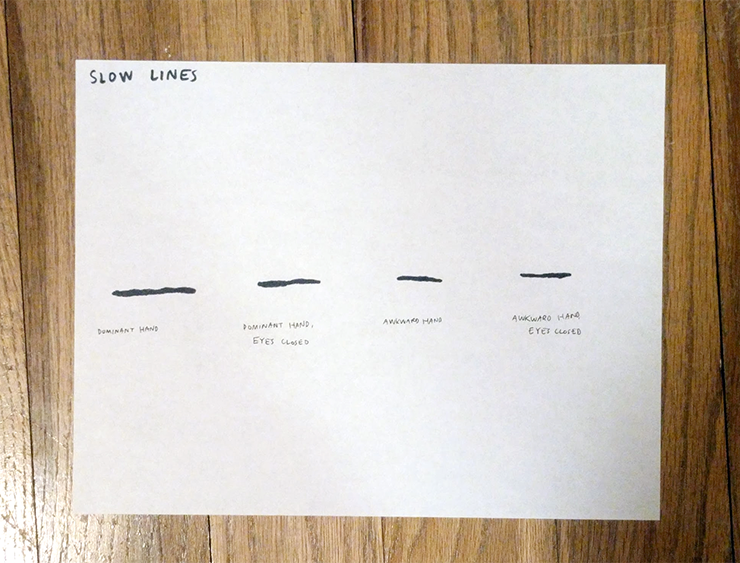 SLOW LINES
DOMINANT HAND
DOMINANT HAND,
EYES CLOSED
AWKWARD HAND
AWKWARD HAND,
EYES CLOSED